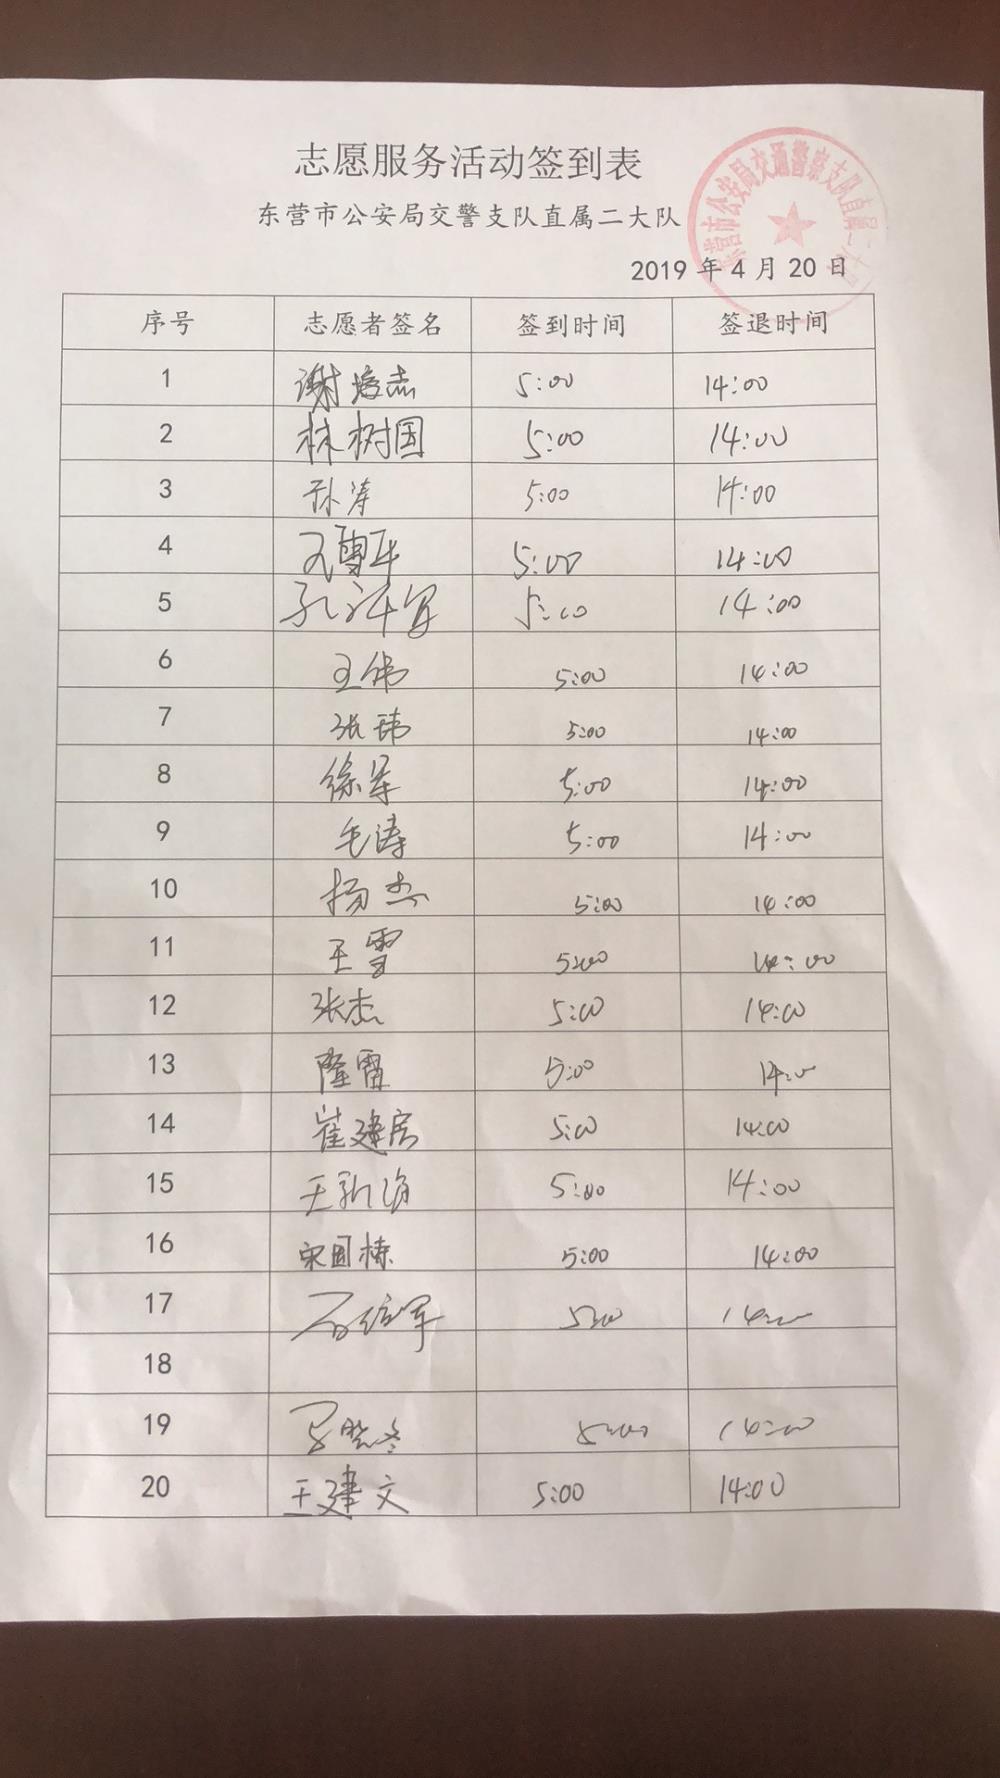 志愿服务活动签到表
东营市公安局交警支队直属二大队
东营市公安局交通警察支队直属二大队
2019 年 4 月 20 日
序号 志愿者签名 签到时间 签退时间
1 谢培杰 5:00 14:00
2 林树国 5:00 14:00
3 孙涛 5:00 14:00
4 5:00 14:00
5 5:00 14:00
6 王伟 5:00 14:00
7 张玮 5:00 14:00
8 徐军 5:00 14:00
9 毛涛 5:00 14:00
10 杨杰 5:00 14:00
11 王雪 5:00 14:00
12 张杰 5:00 14:00
13 隆雷 5:00 14:00
14 崔建房 5:00 14:00
15 5:00 14:00
16 宋国栋 5:00 14:00
17 5:00 14:00
18
19 5:00 14:00
20 王建文 5:00 14:00